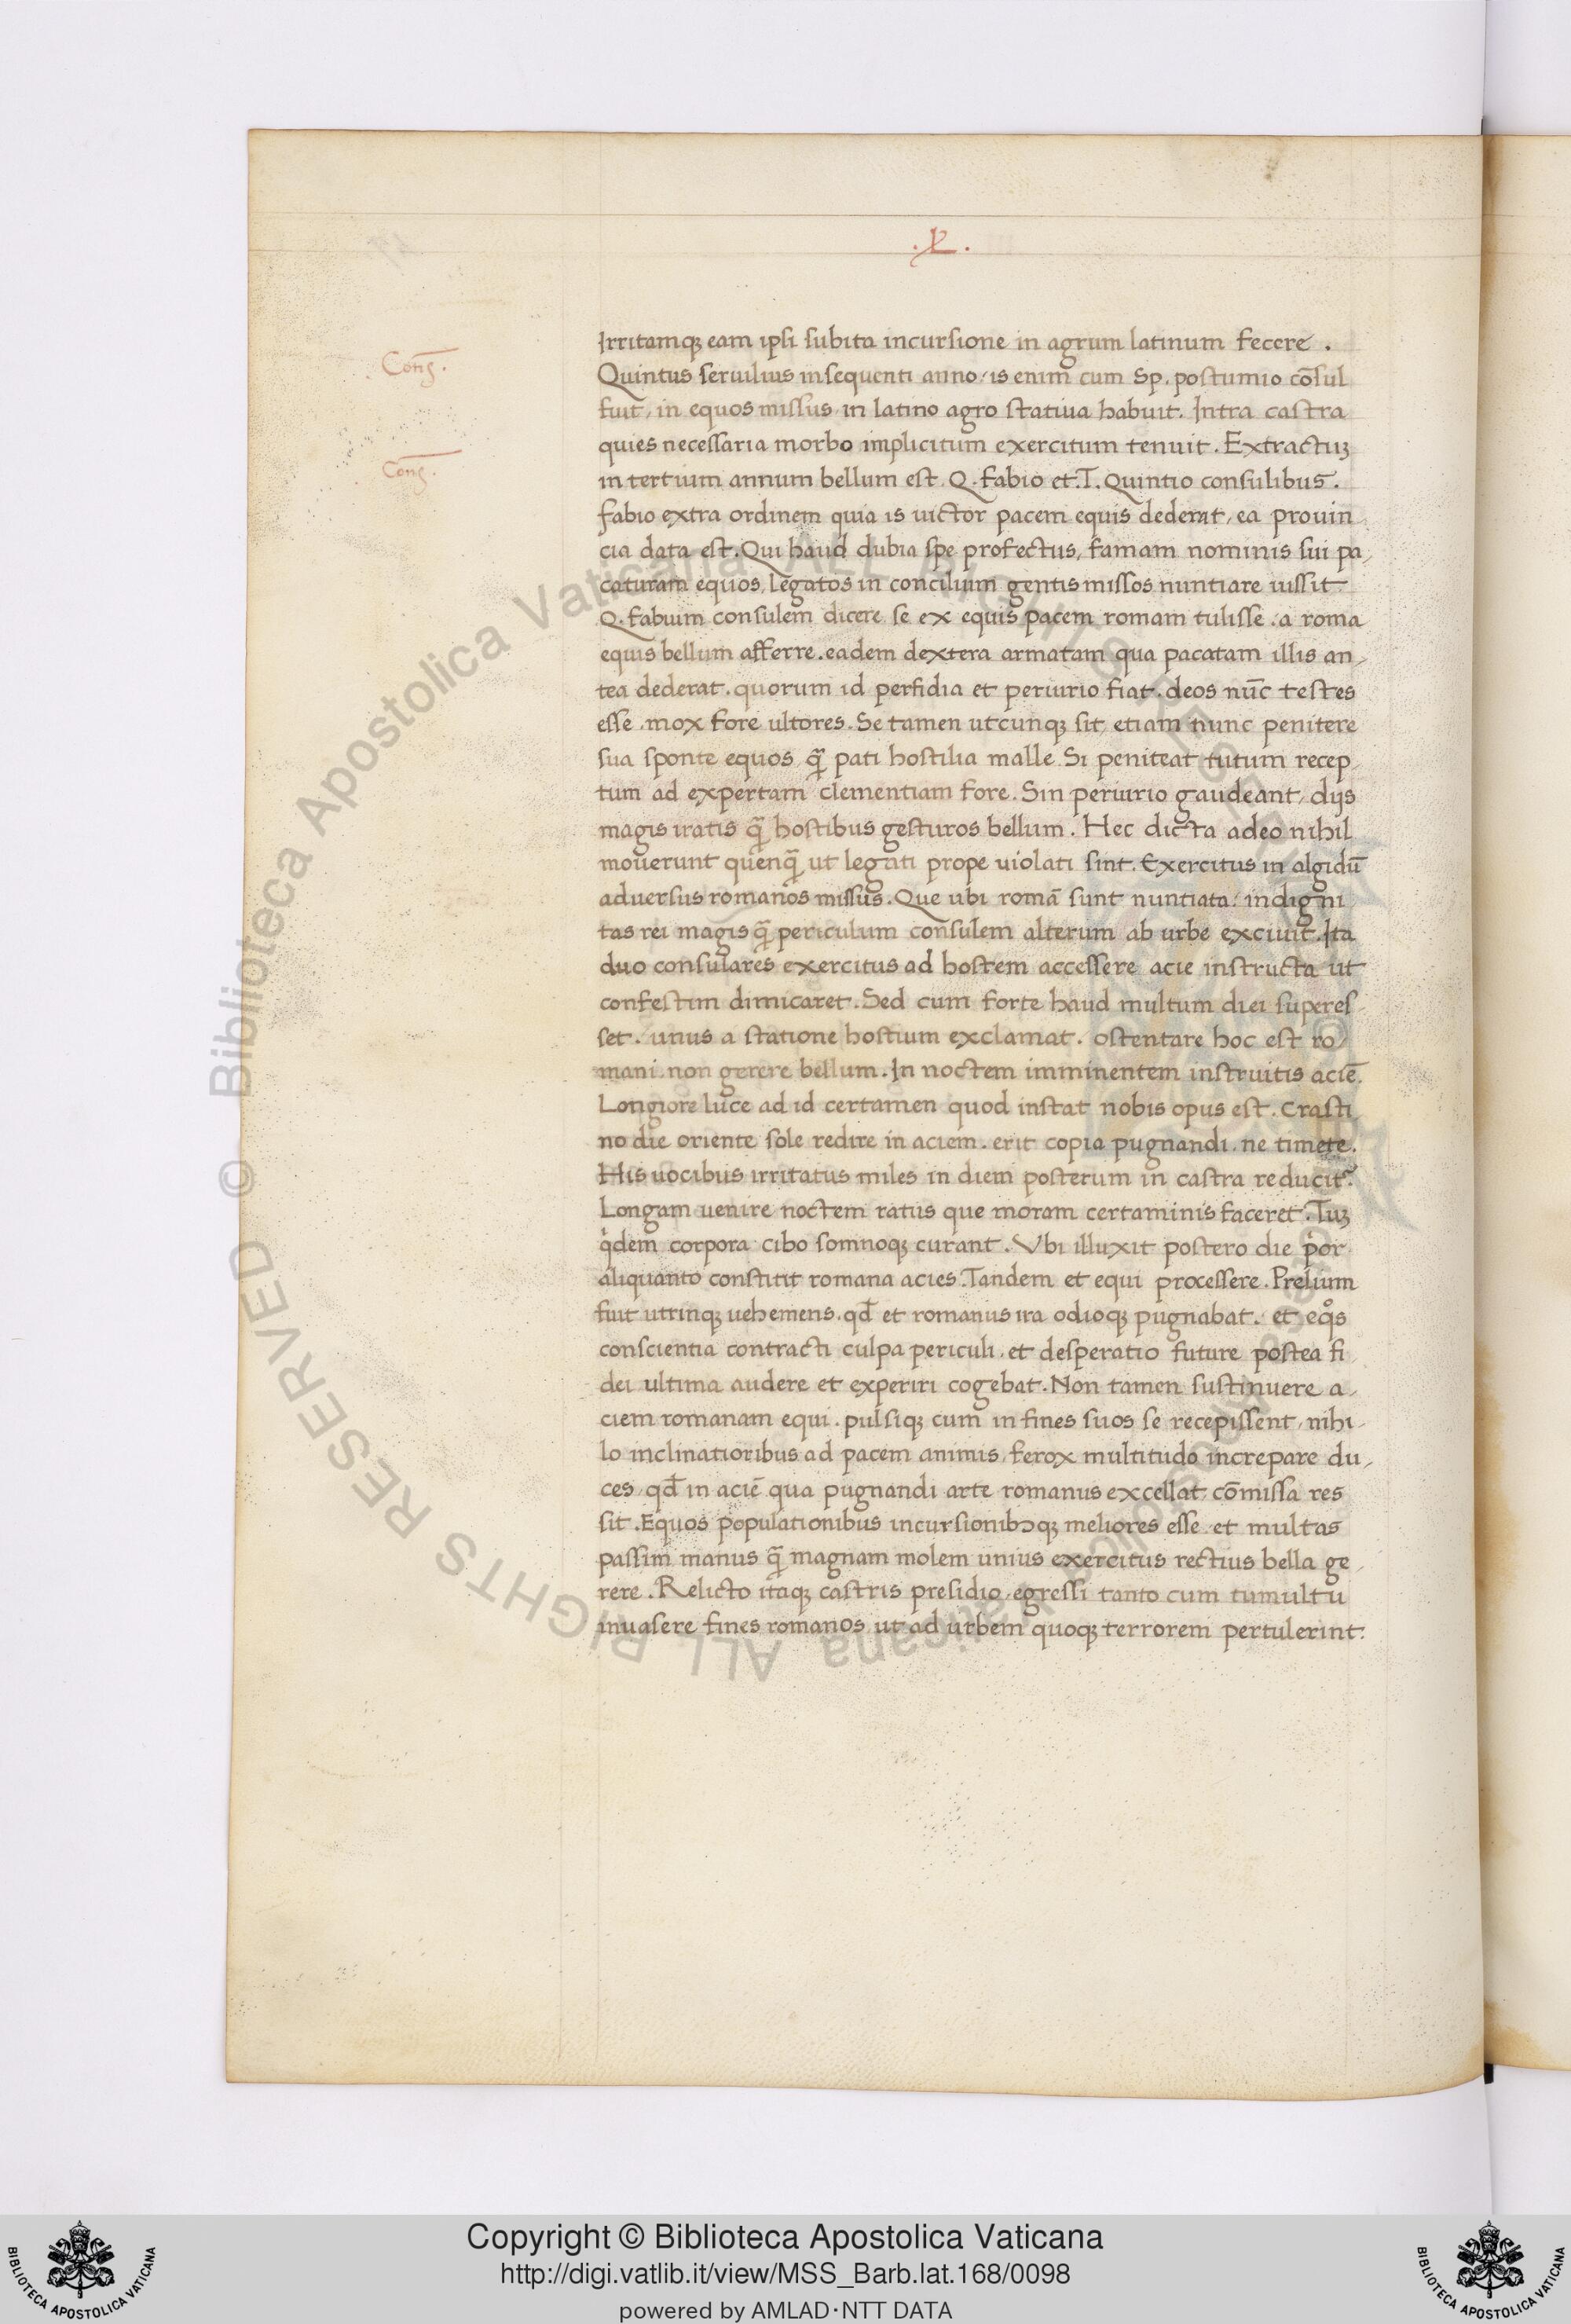 Cons̄.
Cons̄.
Irritamqȝ eam ipsi subita incursione in agrum latinum fecere .
Quintus seruilius insequenti anno / is enim cum Sp. postumio cōsul
fuit / in equos missus / in latino agro statiua habuit. Intra castra
quies necessaria morbo implicitum exercitum tenuit . Extractuȝ
in tertium annum bellum est . Q . Fabio et . T . Quintio consulibus .
Fabio extra ordinem quia is uictor pacem equis dederat / ea prouin
cia data est . Qui haud dubia spe profectus , famam nominis sui pa /
caturam equos , legatos in concilium gentis missos nuntiare iussit
Q . Fabium consulem dicere se ex equis pacem romam tulisse . a roma
equis bellum afferre . eadem dextera armatam qua pacatam illis an /
tea dederat . quorum id perfidia et periurio fiat . deos nūc testes
esse . mox fore ultores . Se tamen utcunqȝ sit / etiam nunc penitere
sua sponte equos , q̄ pati hostilia malle . Si peniteat tutum recep /
tum ad expertam clementiam fore . Sin periurio gaudeant / dijs
magis iratis q̄ hostibus gesturos bellum . Hec dicta adeo nihil
mouerunt quenq̄ ut legati prope uiolati sint . Exercitus in algidū
aduersus romanos missus . Que ubi romā sunt nuntiata / indigni
tas rei magis q̄ periculum consulem alterum ab urbe exciuit . Ita
duo consulares exercitus ad hostem accessere acie instructa ut
confestim dimicaret . Sed cum forte haud multum diei superes /
set . unus a statione hostium exclamat . ostentare hoc est ro /
mani . non gerere bellum . In noctem imminentem instruitis aciē .
Longiore luce ad id certamen quod instat nobis opus est . Crasti
no die oriente sole redite in aciem . erit copia pugnandi . ne timete .
His uocibus irritatus miles in diem posterum in castra reducit² .
Longam uenire noctem ratus que moram certaminis faceret . Tuȝ
qͥdem corpora cibo somnoqȝ curant . Vbi illuxit postero die pͥor
aliquanto constitit romana acies . Tandem et equi processere . Prelium
fuit utrinqȝ uehemens . qđ et romanus ira odioqȝ pugnabat . et eqͦs
conscientia contracti culpa periculi . et desperatio future postea fi
dei ultima audere et experiri cogebat . Non tamen sustinuere a /
ciem romanam equi . pulsiqȝ cum in fines suos se recepissent / nihi /
lo inclinatioribus ad pacem animis / ferox multitudo increpare du /
ces / qđ in aciē qua pugnandi arte romanus excellat cōmissa res
sit . Equos populationibus incursionibꝫqȝ meliores esse . et multas
passim manus q̄ magnam molem unius exercitus rectius bella ge /
rere . Relicto itaqȝ castris presidio / egressi tanto cum tumultu
inuasere fines romanos , ut ad urbem quoqȝ terrorem pertulerint .
© Biblioteca Apostolica Vaticana ALL RIGHTS RESERVED
Copyright © Biblioteca Apostolica Vaticana
http://digi.vatlib.it/view/MSS_Barb.lat.168/0098
powered by AMLAD·NTT DATA
BIBLIOTECA APOSTOLICA VATICANA
BIBLIOTECA APOSTOLICA VATICANA